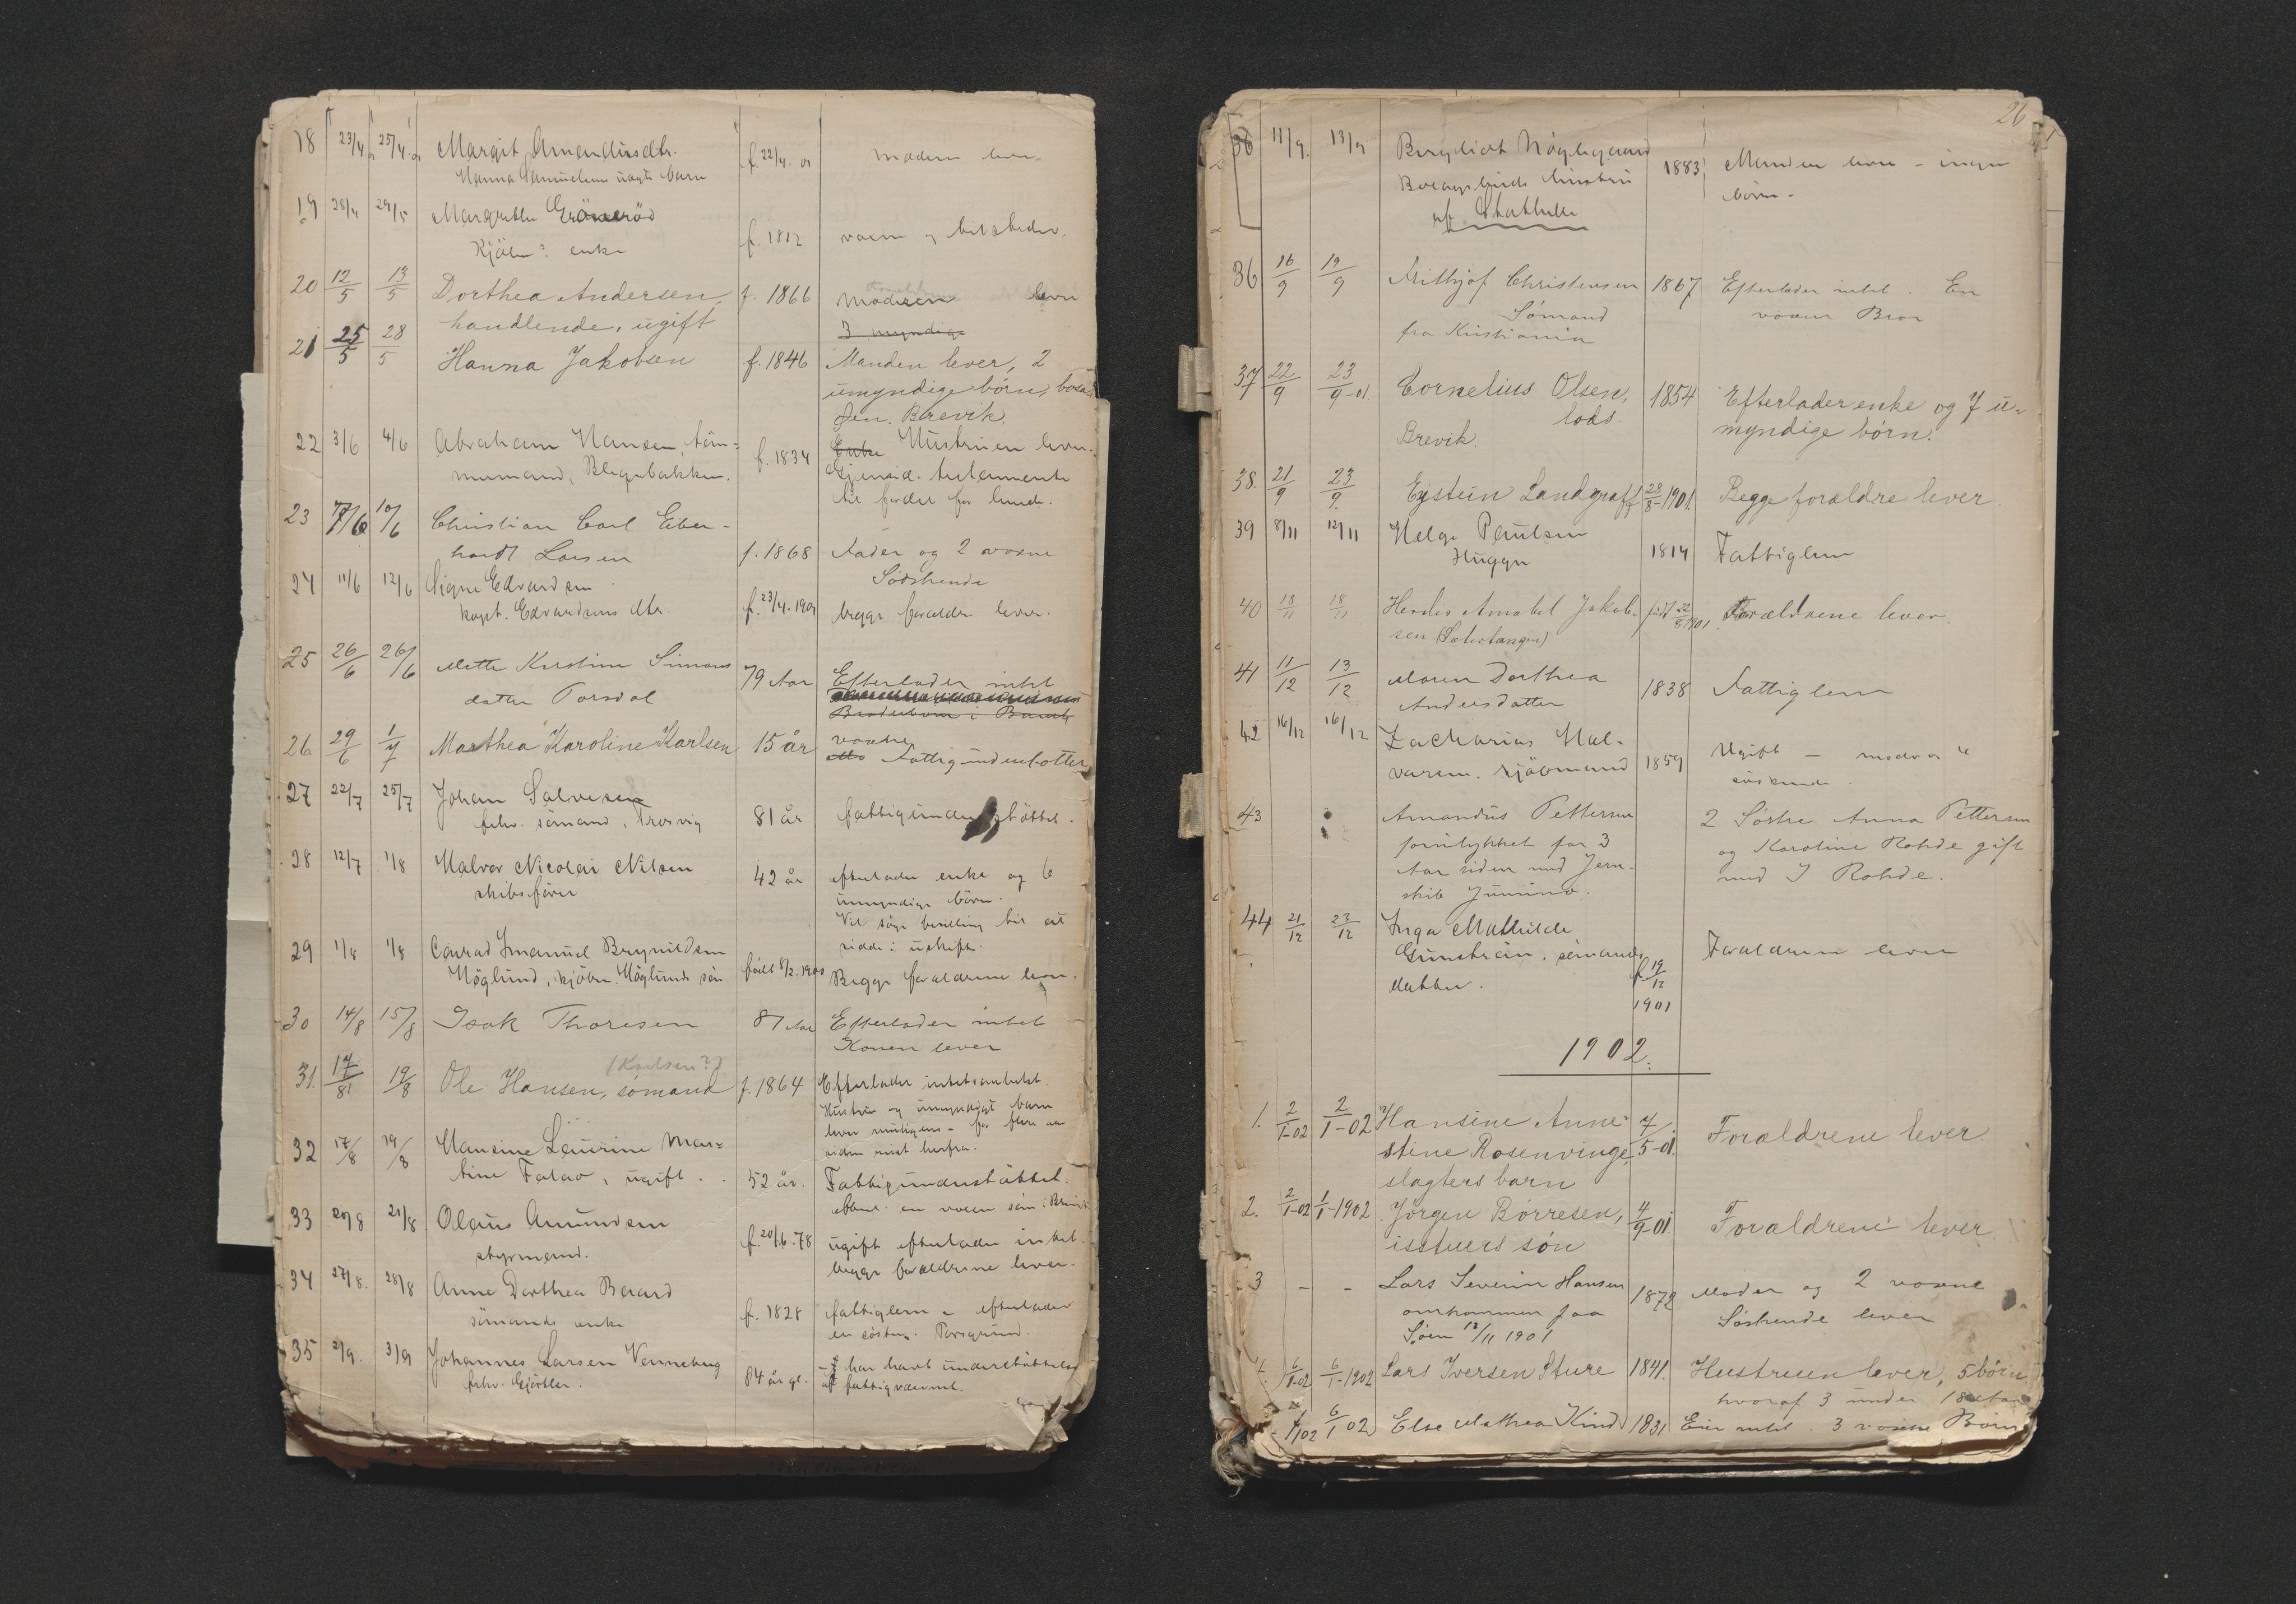 18 23/4 25/4 Margit Amandusdtr. f. 22/4. 01 moderen lever.
Hanna Samuelsens uægte barn
19 28/4 29/5 Margrethe Grönerød
enke f. 1812 voxne
20 12/5 13/5 Dorthea Andersen, f. 1866 moderen lever
handlende, ugift 3 myndige
21 25/5 28/5 Hanna Jakobsen f. 1846 Manden lever, 2
umyndige börn,
Brevik.
22 3/6 4/6 Abraham Hansen, töm- f. 1834 Enke Hustruen lever.
mermand, Blegebakken. Gjensid. testamente
23 7/6 10/6 Christian Carl Eber-
hardt Larsen f. 1868 Fader og 2 voxne
Södskende
24 11/6 12/6 Signe Edvardsen
kapt. Edvardsens dtr. f. 23/4. 1901 begge forældre lever.
25 26/6 26/6 Mette Kirstine Simons 79 Aar Efterlader intet
datter Torsdal
Broderbörn i Bamle
voxne
26 29/6 1/7 Marthea Karoline Karlsen 15 år Fattigunderstöttet
27 22/7 25/7 Johan Salvesen
sömand, 81 år fattigunderstöttet.
28 12/7 1/8 Halvor Nicolai Nilsen 42 år efterlader enke og 6
skibsförer umyndige börn.
Vil söge bevilling til at
sidde i uskifte.
29 1/8 1/8 Conrad Imanuel Brynildsen
Höglund, kjöbm. Höglunds sön født 8/2. 1900 Begge forældrene lever.
30 14/8 15/8 Isak Thoresen 81 Aar Efterlader intet
Konen lever
(Karlsen?)
31. 17/8 19/8 Ole Hansen, sömand f. 1864 Efterlader intetsomhelst.
Hustru og umyndigt barn
lever muligens - for flere aar
siden reist herfra.
32 17/8 19/8 Hansine Laurine Mar-
tine Falao, ugift. 52 år. Fattigunderstöttet.
en voxen sön i
33 20/8 21/8 Olaus Amundsen
styrmand. f. 20/6. 78 ugift efterlader intet.
begge forældrene lever.
34 27/8. 28/8 Anne Dorthea Baard
sömands enke f. 1828 fattiglem - efterlader
en söster i Porsgrund.
35 2/9. 3/9 Johannes Larsen Venneberg 84 år gl. - har havt understöttelse
af fattigvæsenet.
26
36 11/9. 13/9 Bergliot Nöglegaard 1883 Manden lever - ingen
hustru börn.
af Stathelle
36 16/9 19/9 Frithjof Christensen 1867 Efterlader intet. En
Sømand voxen Bror
fra Kristiania
37. 22/9 23/9-01 Cornelius Olsen, 1854 Efterlader enke og 7 u-
lods. myndige börn.
Brevik.
38. 21/9 23/9. Eystein Landgraff f. 28/8-1901. Begge forældre lever
39 8/11 12/11 Helge Paulsen
1814 Fattiglem
40 18/11 18/11 Herdis Amabel Jakob- født 22/8 1901 Forældrene lever.
sen
41 11/12 13/12 Maren Dorthea 1838 Fattiglem
Andersdatter
42 16/12 16/12 Zacharias Hal-
varsen. sjöömand 1859 Ugift -
söskende.
43 Amandus Pettersen 2 Søstre Anna Pettersen
forulykket for 3 og Karoline Rohde gift
Aar siden med Jern- med J Rohde.
skib
44 21/12 23/12 Inga Mathilde
sömands f. 19/12 1901 Forældrene lever
datter.
1902.
1. 2/1-02 2/1-02 Hansine Anne- 7/5-01. Forældrene lever.
stine Rosenvinge,
slagters barn
2. 2/1-02 1/1-1902 Jörgen Børresen, 4/9-01. Forældrene lever
søn
3 - - Lars Severin Hansen 1872 Moder og 2 voxne
omkommen paa Søskende lever
Søen 12/11 1901
4. 6/1-02 6/1-1902 Lars Iversen Sture 1841. Hustruen lever, 5 börn.
hvoraf 3 under 18 Aar
6/1 02 Else Mathea Kind 1831 Eier intet. 3 voxne Børn